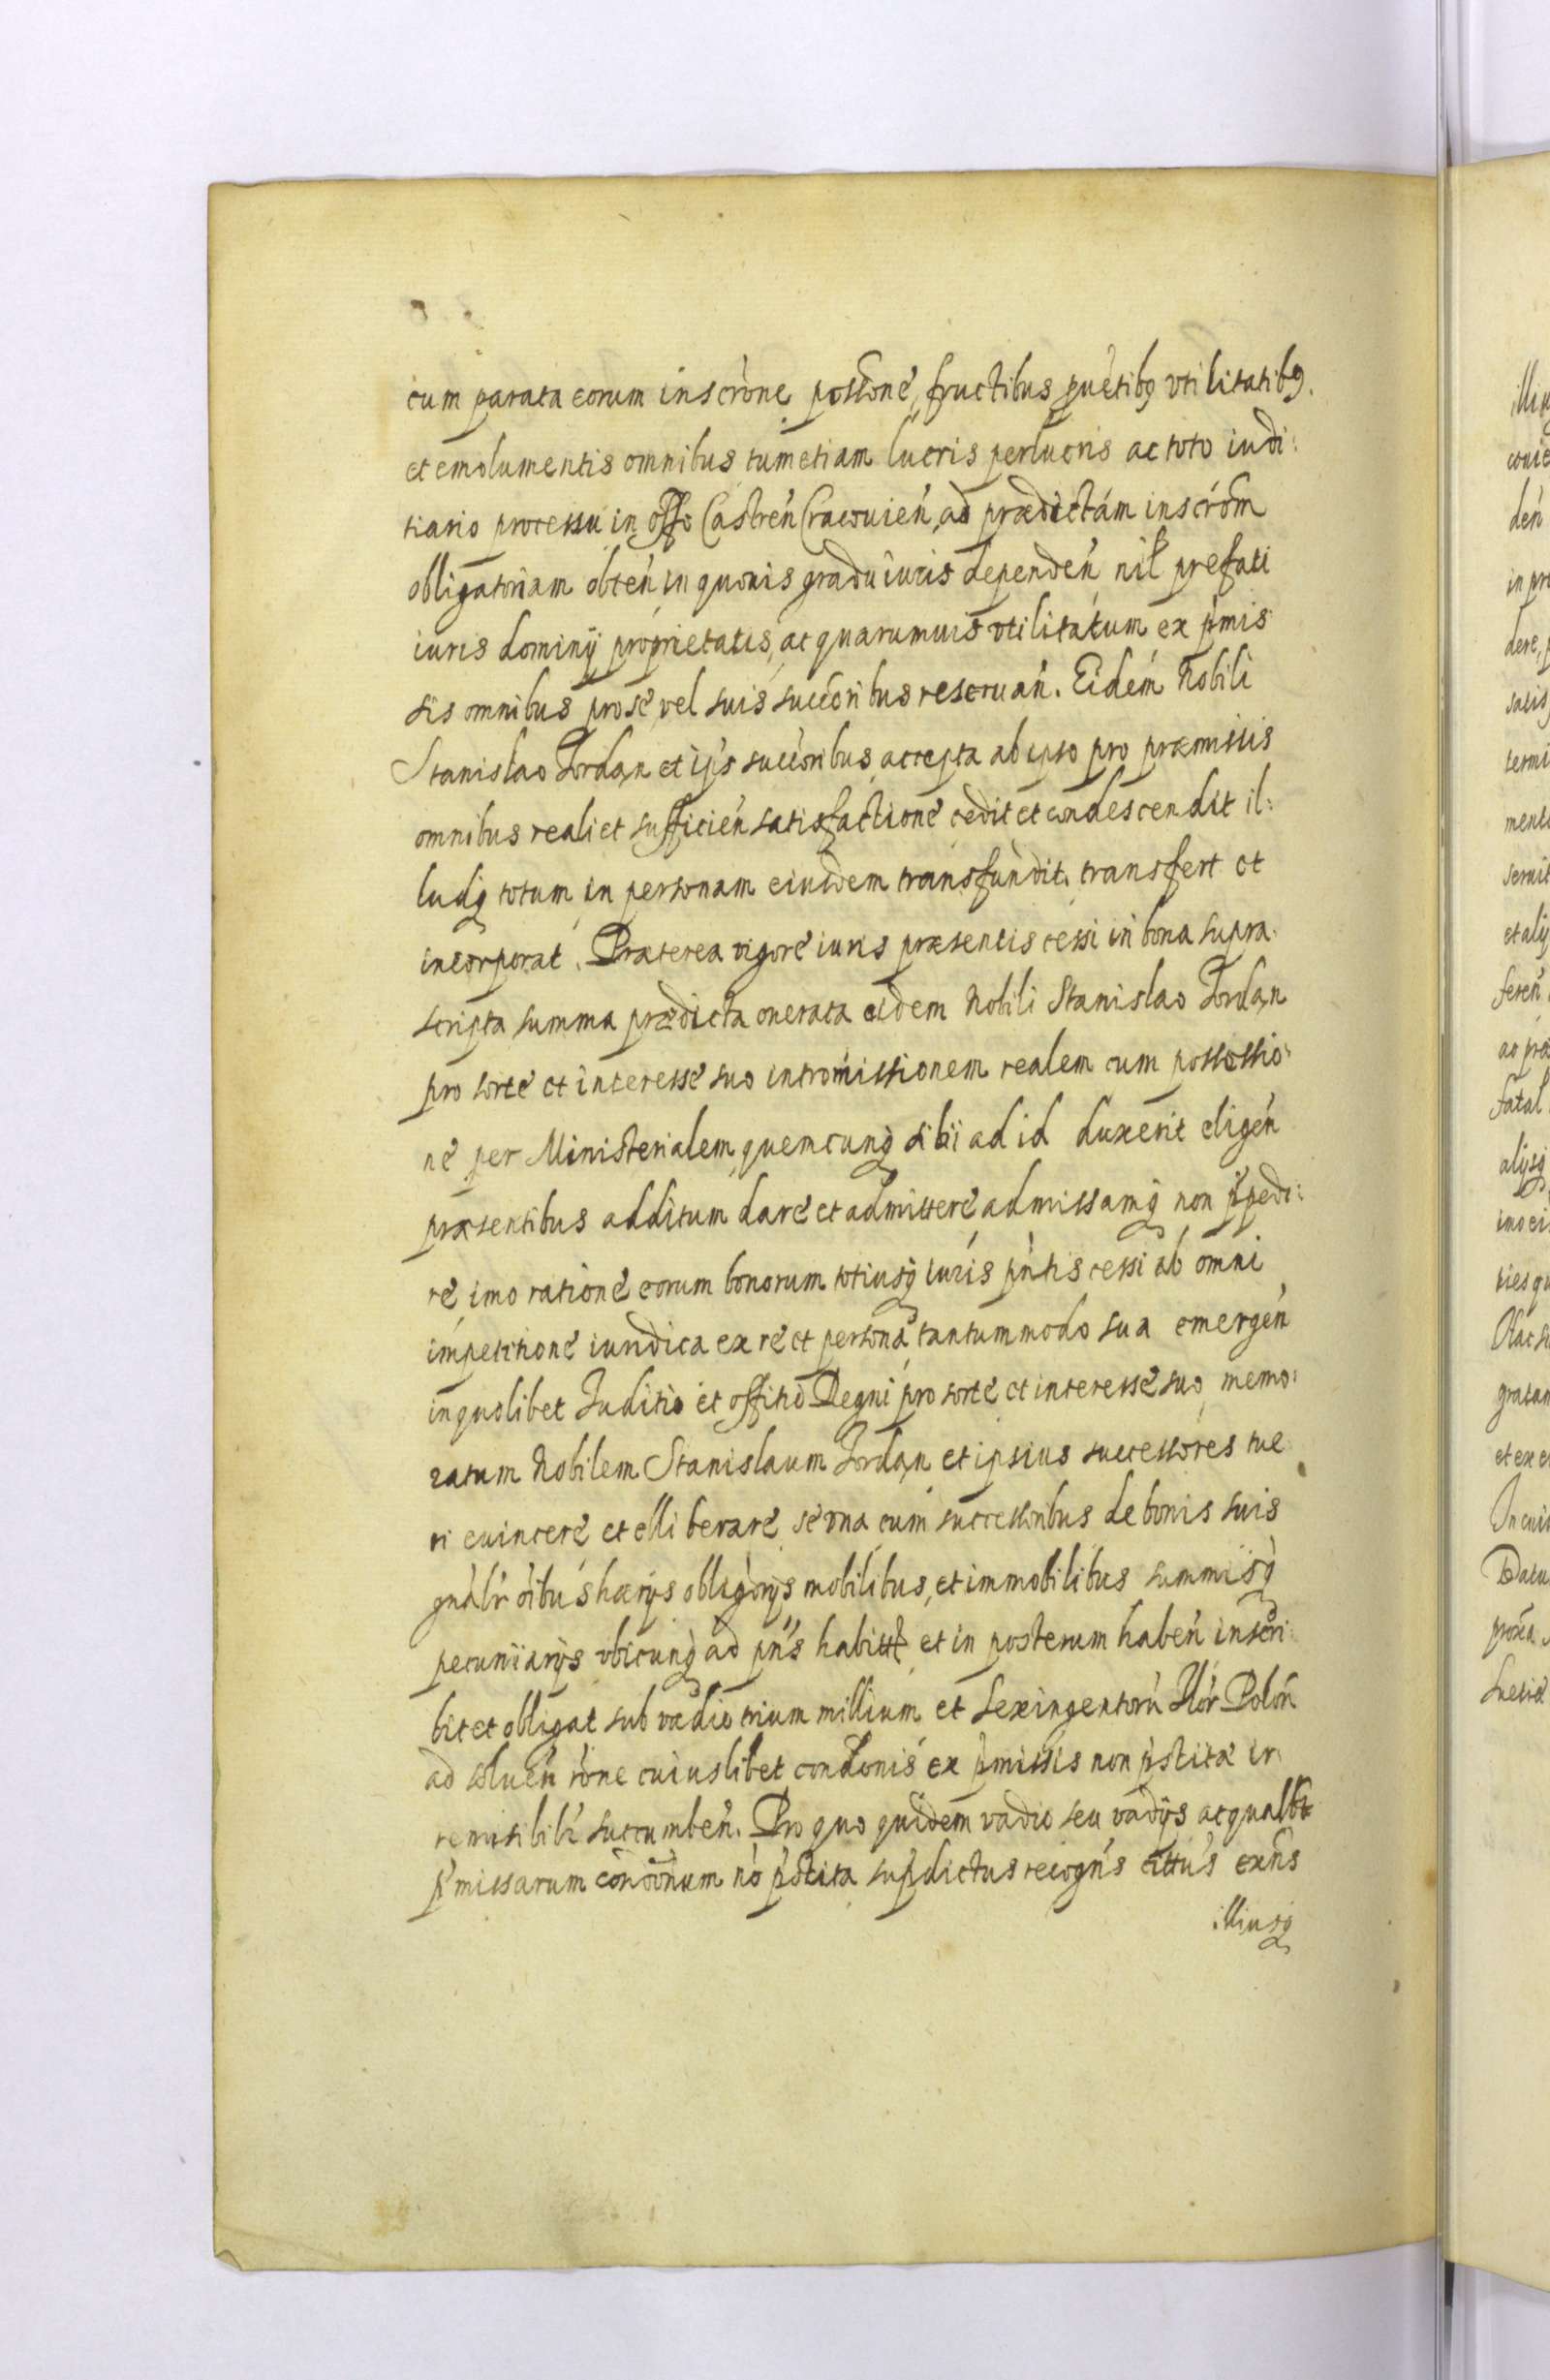 cum parata eorum inscrone possone, fructibus puetibq vtilitatibq.
et emolumentis omnibus tum etiam lucris perlucris ac toto iudi:
tiario processu in offo Castren Cracouien, ad prædictam inscrom
obligatoriam obten in quouis gradu iuris dependen nil prefati
iuris dominij proprietatis, ac quarumuis vtilitatum ex pmis
sis omnibus pro se vel suis succoribus reseruan. Eidem Nobili
Stanislao Jordan et ijs succoribus, accepta ab ipso pro præmissis
omnibus reali et sufficien satisfactione cedit et condescendit il:
ludq totum in personam eiusdem transfundit, transfert et
incorporat. Præterea vigore iuris præsentis cessi in bona supra
scripta summa prædicta onerata eidem Nobili Stanislao Jordan
pro sorte et interesse suo intromissionem realem cum possessio:
ne per Ministerialem quemcunq sibi ad id duxerit eligen
præsentibus additum dare et admittere admissamq non ppedi:
re imo ratione eorum bonorum totiusq iuris pntis cessi ab omni
impetitione iuridica ex re et persona tantummodo sua emergen
in quolibet Juditio et offitio Regni pro sorte et interesse suo memo:
ratum Nobilem Stanislaum Jordan et ipsius successores tue
ri euincere et elliberare se vna cum successoribus de bonis suis
gnalr oibus hærijs obligorijs mobilibus, et immobilibus summisq
pecuniarijs vbicunq ad pns habitt et in posterum haben inscri
bit et obligat sub vadio trium millium et sexingentoru Flor Polon
ad soluen rone cuiuslibet condonis ex pmissis non pstitæ ir
remisibilr succumben. Pro quo quidem vadio seu vadijs ac qualbt
pmissarum condonum no pstita supdictus recogns cittus exns
illiusq